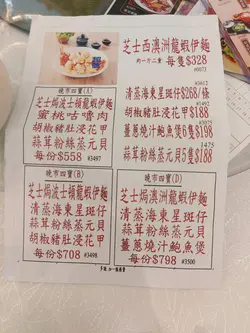 芝士西澳洲龍蝦伊麵
約一斤二重 每隻$328
#0073
#3612
清蒸海東星斑仔$268/條
#1492
胡椒豬肚浸花甲$188
#3075
薑蔥燒汁鮑魚煲6隻$198
1475
蒜茸粉絲蒸元貝5隻$188
晚市四寶(A)
芝士焗波士頓龍蝦伊麵
蜜桃咕嚕肉
胡椒豬肚浸花甲
蒜茸粉絲蒸元貝
每份$558 #3497
晚市四寶(B)
芝士焗波士頓龍蝦伊麵
清蒸海東星斑仔
蒜茸粉絲蒸元貝
胡椒豬肚浸花甲
每份$708 #3498
晚市四寶(D)
芝士焗澳洲龍蝦伊麵
清蒸海東星斑仔
蒜茸粉絲蒸元貝
薑蔥燒汁鮑魚煲
每份$798 #3500
另收加一服務費